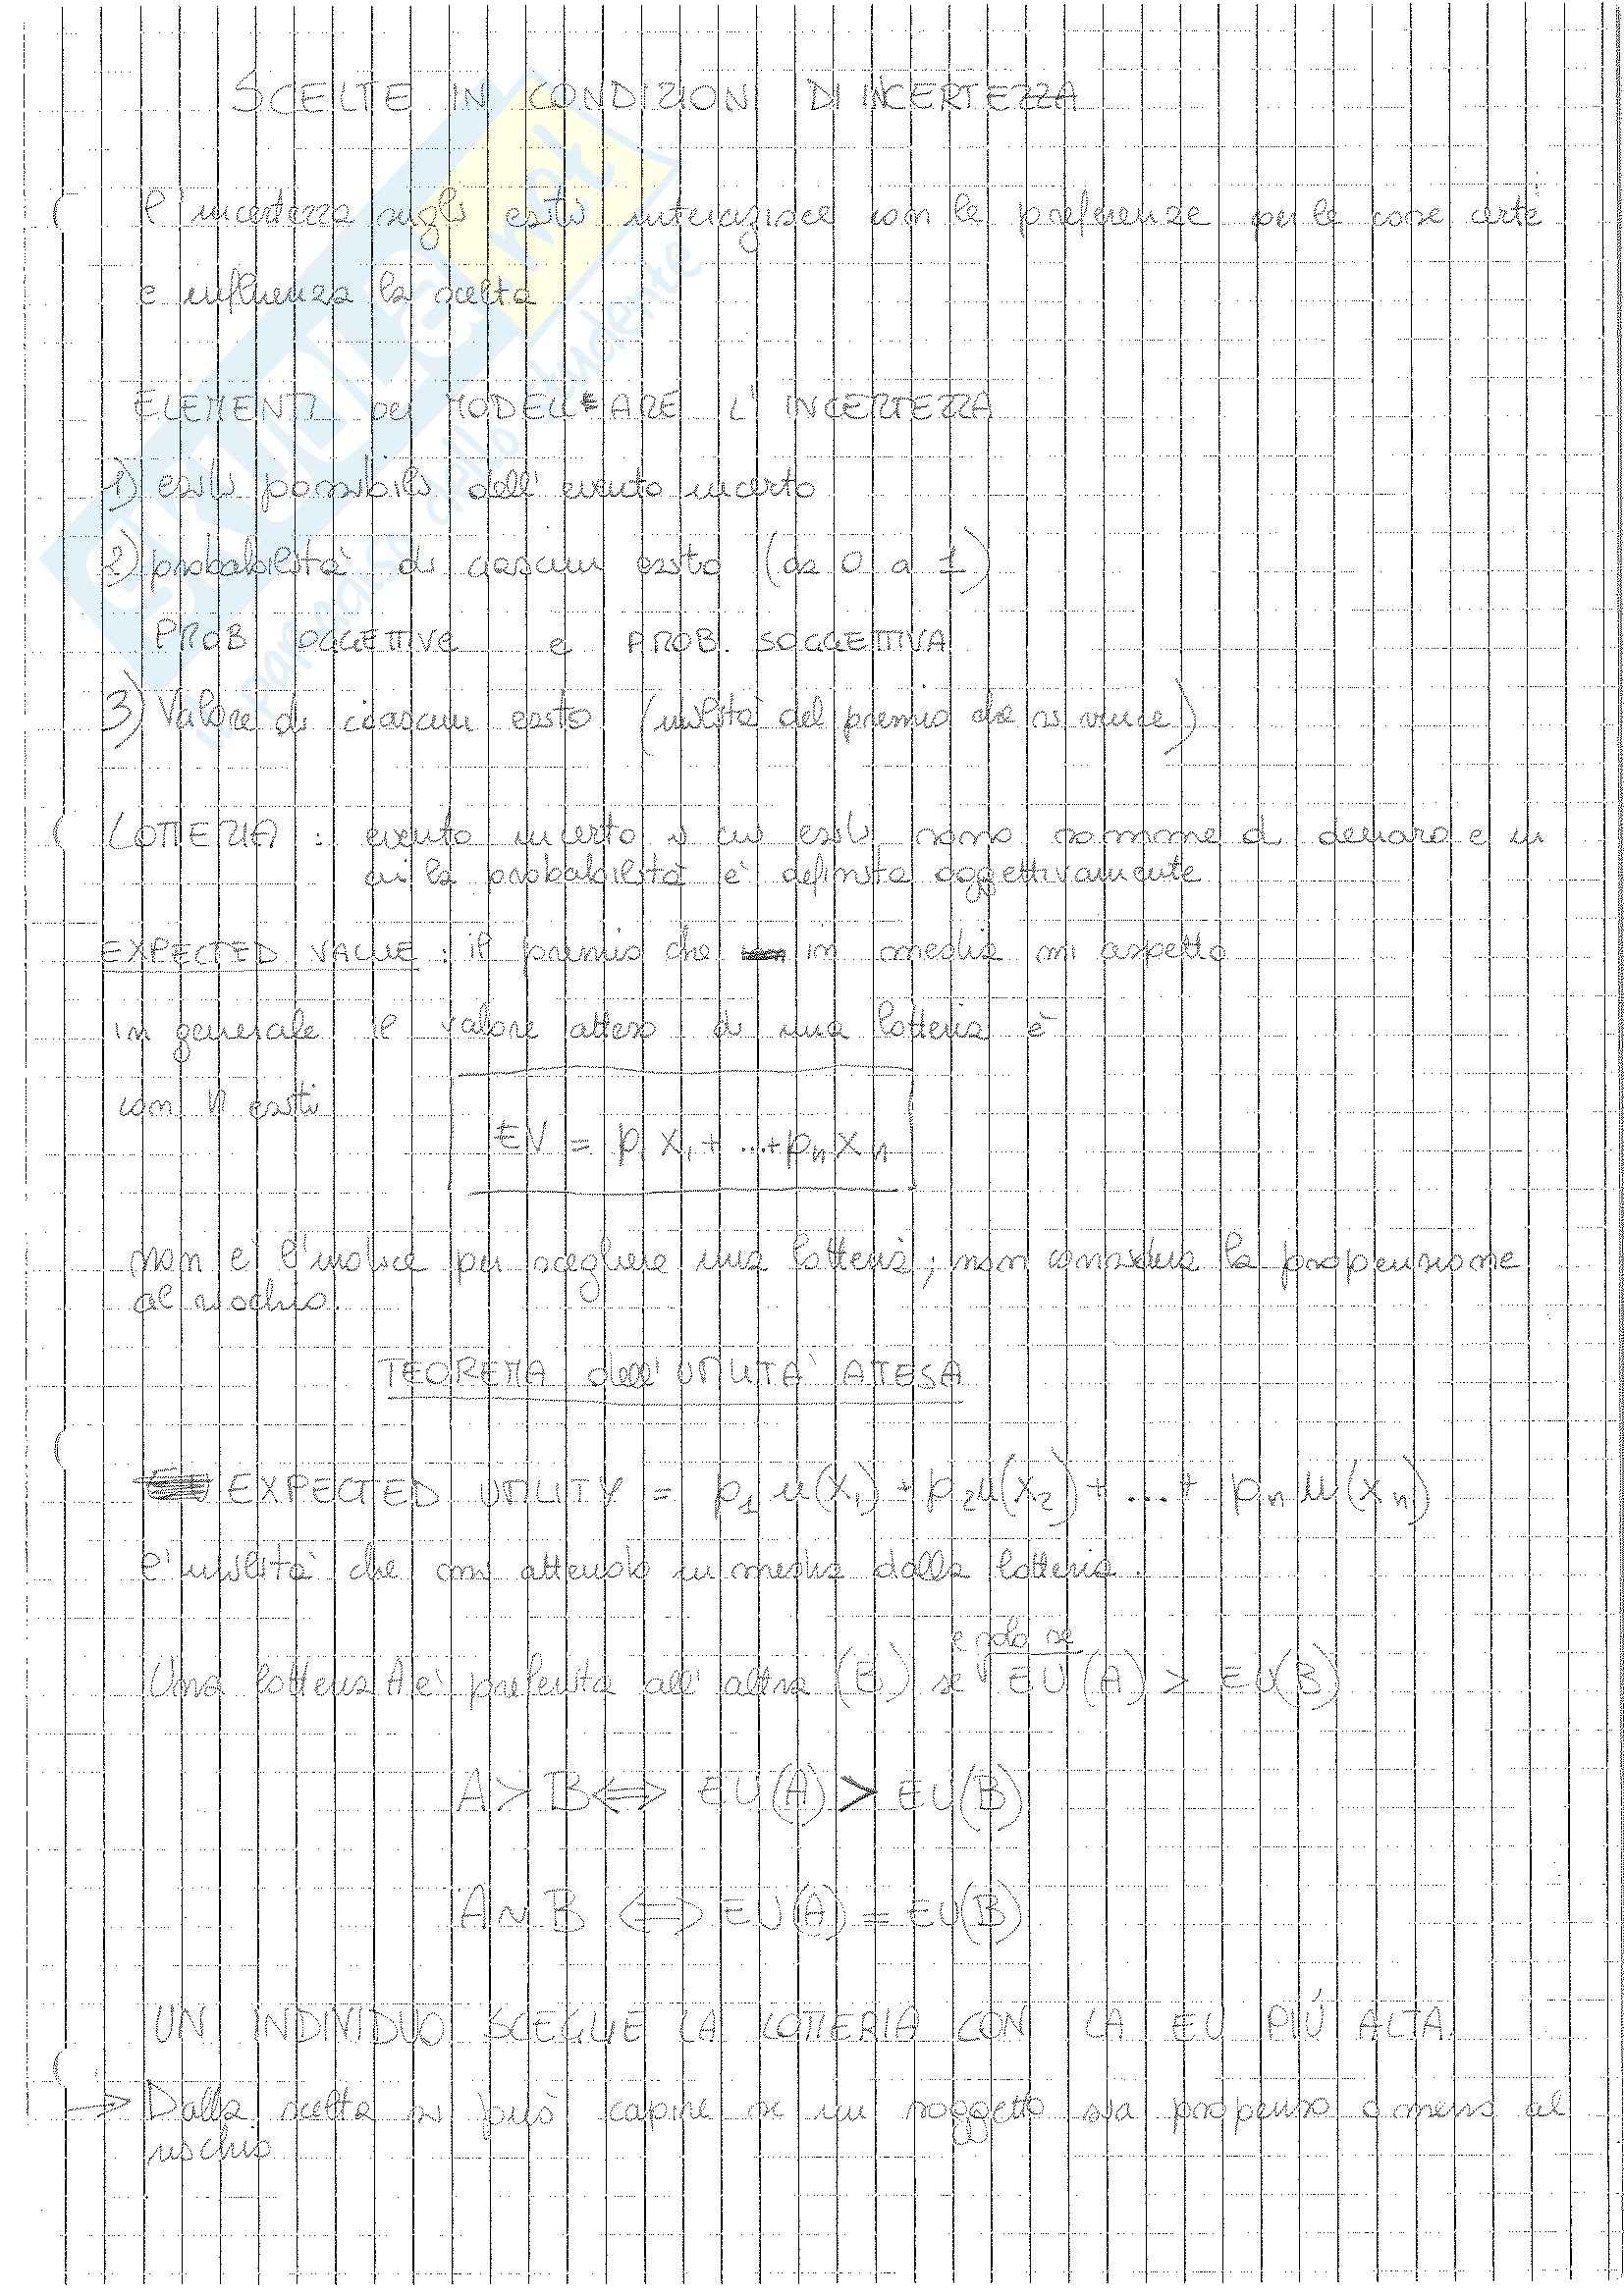 SCELTE IN CONDIZIONI DI INCERTEZZA
l'incertezza sugli esiti interagisce con le preferenze per le cose certe
e influenza la scelta
ELEMENTI per MODELLARE L'INCERTEZZA
1) esiti possibili dell'evento incerto
2) probabilità di ciascun esito (da 0 a 1)
PROB OGGETTIVA e PROB. SOGGETTIVA
3) Valore di ciascun esito (utilità del premio che si vince)
LOTTERIA : evento incerto i cui esiti sono somme di denaro e in
cui la probabilità è definita oggettivamente
EXPECTED VALUE : il premio che in media mi aspetto
in generale il valore atteso di una lotteria è
con n esiti
EV = p₁ x₁ + ...+ pₙ xₙ
non è l'indice per scegliere una lotteria; non considera la propensione
al rischio.
TEOREMA dell'UTILITA' ATTESA
EXPECTED UTILITY = p₁ u(x₁) + p₂u(x₂) + ... + pₙ u(xₙ)
l'utilità che mi attendo in media dalla lotteria.
e solo se
Una lotteria A è preferita all'altra (B) se EU(A) > EU(B)
A > B ⇔ EU(A) > EU(B)
A ~ B ⇔ EU(A) = EU(B)
UN INDIVIDUO SCEGLIE LA LOTTERIA CON LA EU PIÚ ALTA.
→ Dalla scelta si può capire se un soggetto sia propenso o meno al
rischio